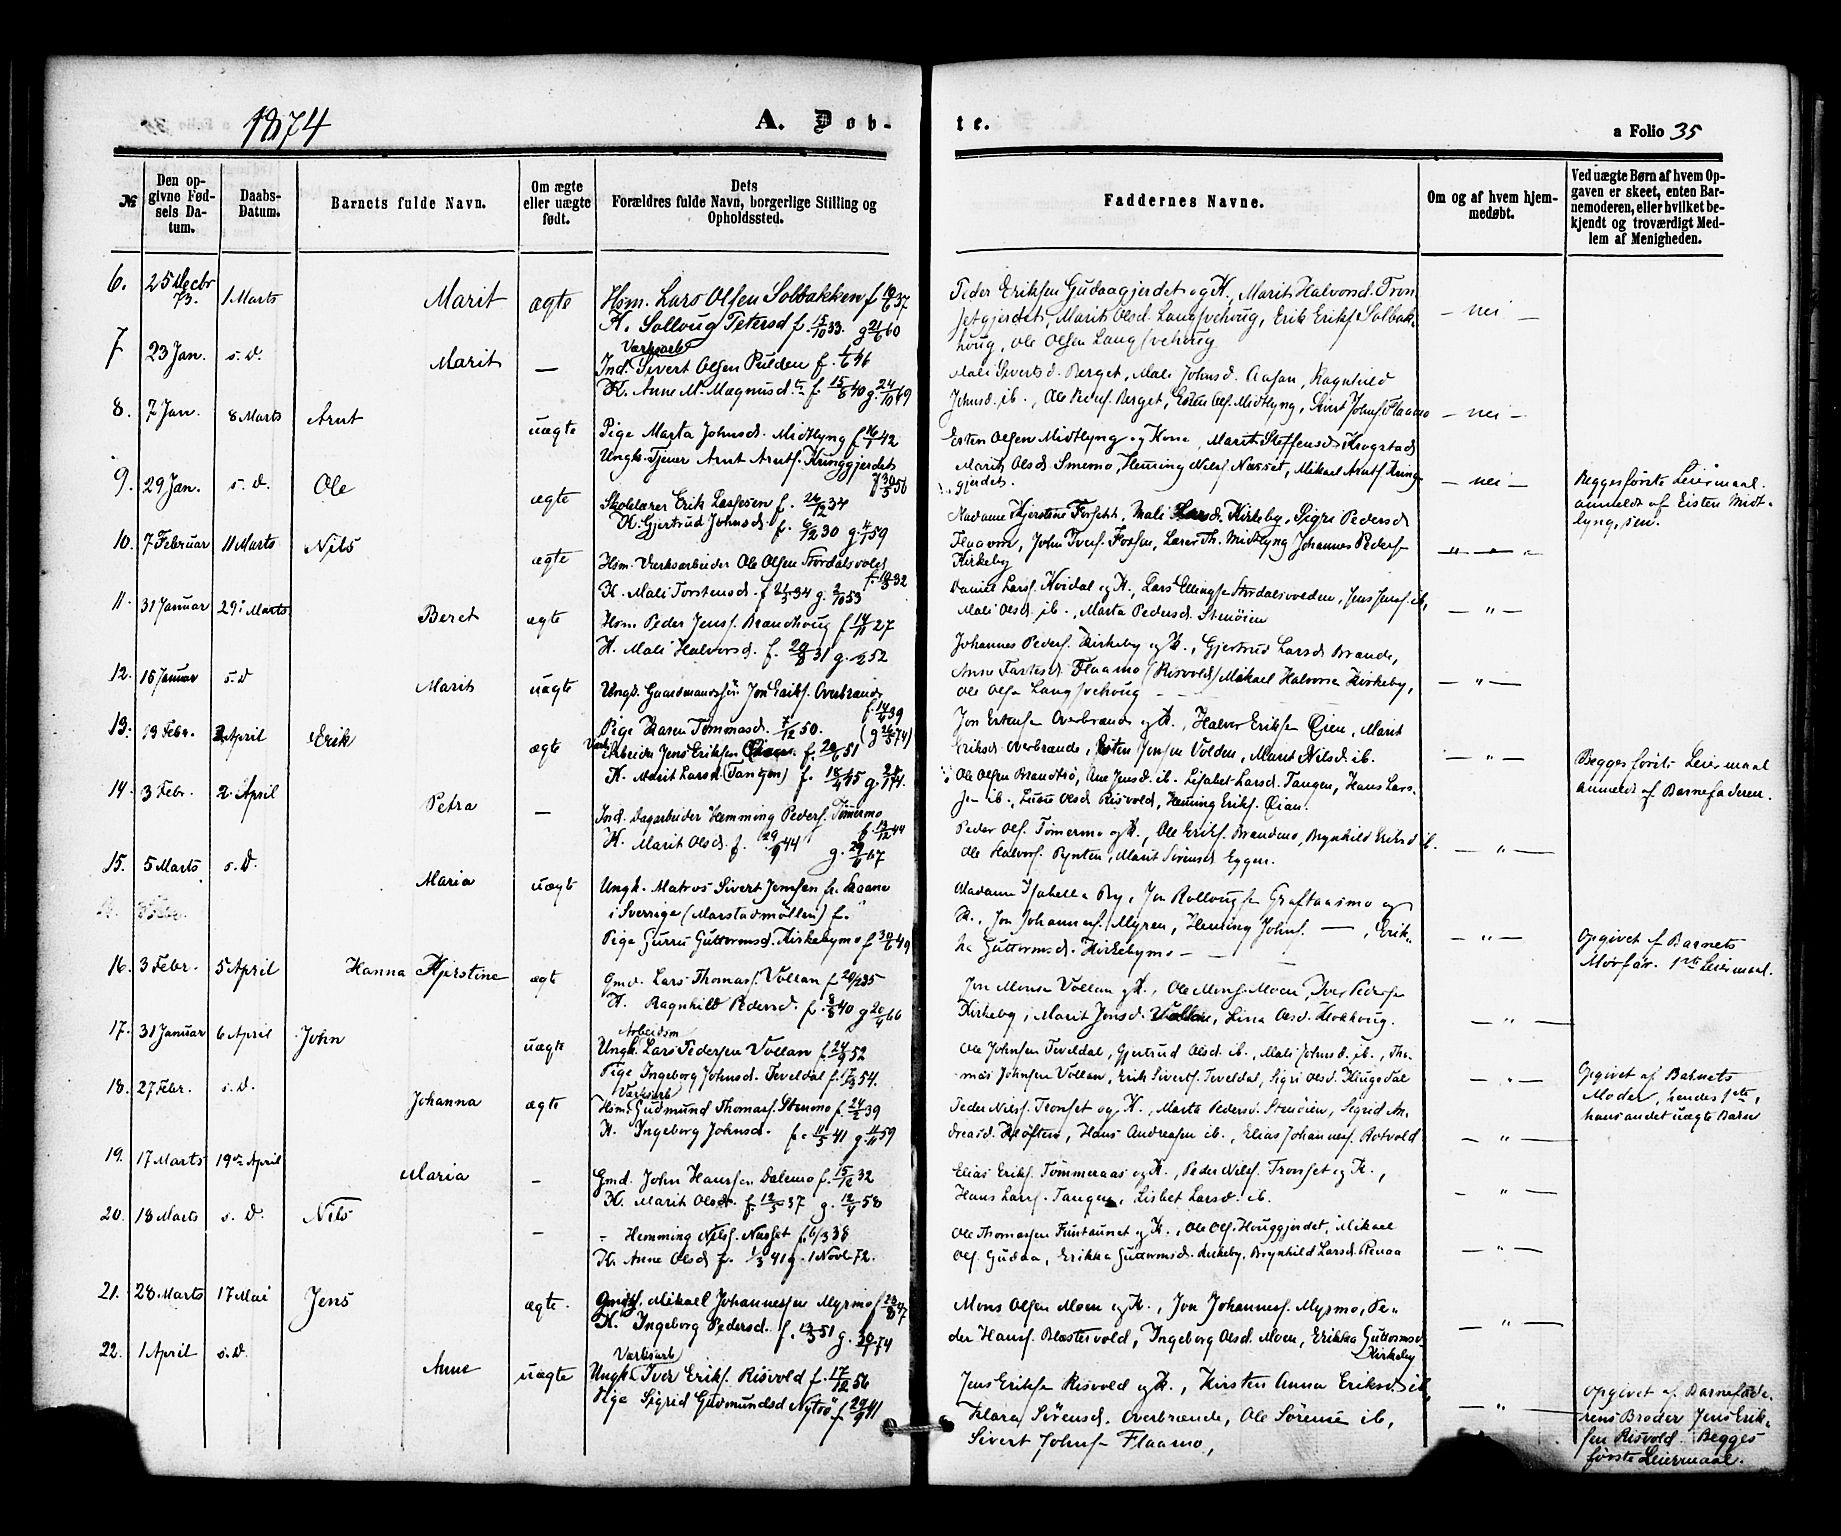 1874
A. Døb-
te.
a Folio 35
№
Den opgivne Fødsels Datum.
Daabs-Datum.
Barnets fulde Navn.
Om ægte eller uægte født.
Dets Forældres fulde Navn, borgerlige Stilling og Opholdssted.
Faddernes Navne.
Om og af hvem hjemmedøbt.
Ved uægte Børn af hvem Opgaven er skeet, enten Barnemoderen, eller hvilket bekjendt og troværdigt Medlem af Menigheden.
6. 25 Decbr 73. 1 Marts Marit ægte Hsm. Lars Olsen Solbakken f. 37
K. Sollaug Petersd f. 15/10 33. g 21/6 60
Peder Eriksen Gudaagjerdet og K., Marit Halvorsd. Tron-
setgjerdet, Marit Olsd. Langsvehoug, Erik Eriks. Solbak-
houg, Ole Olsen Langsvehoug
— nei —
7 23 Jan. s. D. Marit —
Værksarb
Ind. Sivert Olsen Pulden f. 46
K. Anne M. Magnusd. f. 15/8 40 g. 24/10 69
Mali Sivertsd. Berget, Mali Johnsd. Aasan, Ragnhild
Johnsd. ib., Ole Peders. Berget, Esten Ols. Midtlyng, Sivert Johns. Flaamo
— nei —
8. 7 Jan. 8 Marts Arnt uægte Pige Marta Johnsd. Midtlyng f. 42
Ungk. Tjener Arnt Arnts. Kringgjerdet
f 30/5 56
Esten Olsen Midtlyng og Kone, Marit Steffensd. Krogstad
Marit Olsd. Smemo, Heming Nils. Nasset, Mikael Arnts. Kring-
gjerdet.
— nei —
Begges første Leiermaal
anmeldt af Eisten Midt-
lyng, sen.
9. 29 Jan. s. D. Ole ægte Skolelærer Erik f. 34
K. Gjertrud Johnsd. f. 6/12 30 g. 59
Madame Kjerstine Forseth, Mali Larsd. Kirkeby, Sigri Pedersd
Flaamo, John Ivers. Fossen, Lærer Th. Midtlyng Johannes Peders.
Kirkeby
10. 7 Februar 11 Marts Nils ægte Hsm. Værksarbeider Ole Olsen Stordalsvold
f. 32
K. Mali Torstensd. f 34 g. 53
Daniel Larss. Kvidal og K., Lars Ellings. Stordalsvolden, Jens Jens. ib,
Mali Olsd. ib., Marta Pedersd. Stenøien
— " —
11. 31 Januar 29. Marts Beret ægte Hsm. Peder Jens. Brandhoug f. 14/11 27
K. Mali Halvorsd. f. 29/8 31 g. 52
Johannes Peders. Kirkeby og K., Gjertrud Larsd. Brande,
Anne Flaamo (Risvold) Mikael Halvorsen Kirkeby,
Ole Olsen Langsvehoug
— " —
12. 16 Januar s. D Marit uægte Ungk. Gaardmandssøn Jon Eriks. Overbrande
f. 14/4 39
Pige Karen Tømmasd. 7/12 50. (g 74)
Jon Estensen Overbrande og K., Halvor Eriksen Øien, Marit
Eriksd. Overbrande, Esten Jensen Volden, Marit Nilsd. ib.
— " —
Begges første Leiermaal
anmeldt af Barnefaderen.
13. 13 Febr. 2 April Erik ægte Arbeider Jens Eriksen Øian f. 51
K. Marit Larsd (Tangen) f. 18/4 45 g. 74.
Ole Olsen Brandtrø, Ane Jensd. ib. Lisabet Larsd. Tangen, Hans Lars-
sen ib., Lucie Olsd. Risvold, Heming Eriks. Øian.
14. 3 Febr. 2. April Petra — Ind. Dagarbeider Hemming Peders. Tømermo
f. 13/12 44
K. Marit Olsd. f. 29/9 44 g. 67
Peder Ols. Tømermo og K., Ole Eriks. Brandmo, Brynhild Eriksd ib.
Ole Halvors. Rynten, Marit Sørensd Eggen.
— " —
15. 5 Marts s. D. Maria uægte Ungk. Matros Sivert Jensen fr. Skaane
i Sverrige (Marstadmøllen) f. "
Pige Gurru Guttormsd. Kirkebymo f. 30/6 49
Madame Isabella By, Jon Rollougsen Graftaasmo og
K., Jon Johannes. Myren, Heming Johns. —, Erik-
ka Guttormsd. Kirkebymo —
— " —
Opgivet af Barnets
Morfar. 1ste Leiermaal.
16. 3 Febr. 5 April Hanna Kjerstine ægt Gmd. Lars Thomass. Vollan f. 35
K. Ragnhild Pedersd. f. 8/8 40 g 20/4 66
Jon Monsen Vollan og K., Ole Mons. Moen, Iver Peders.
Kirkeby, Marit Jonsd. Vollan, Lina Olsd. Klokhoug.
— " —
17. 31 Januar 6 April John uægte
Arbeidsm
Ungk. Lars Pedersen Vollan f. 52
Pige Ingeborg Johnsd. Teveldal f. 54.
Ole Johnsen Teveldal, Gjertrud Olsd. ib., Mali Johnsd. ib., Tho-
mas Johnsen Vollan, Erik Siverts. Teveldal, Sigri Olsd. Klugsdal
— " —
Opgivet af Barnets
Moder, hendes 1ste,
hans andet uægte Barn
18. 27 Febr. s. D. Johanna ægte
Værksarb
Hsm. Gudmund Thomass. Stenmo f. 24/2 39
K. Ingeborg Johnsd. f. 11/5 41 g. 11/11 59
Peder Nils. Tronset og K., Marta Pedersd. Stenøien, Sigrid An-
dreasd. Kløften, Hans Andreasen ib., Elias Johannes. Rotvold
— " —
19. 17 Marts 19de April Maria — Gmd. John Hanssen Dalemo f. 15/12 32
K. Marit Olsd. f. 12/3 37 g. 12/4 58
Elias Eriks. Tømmeraas og K., Peder Nils. Tronset og K.,
Hans Lars. Tangen, Lisbet Larsd. ib.
— " —
20. 18 Marts s. D. Nils — " Hemming Nils. Nasset f. 6/3 38
K. Anne Olsd f. 1/3 41 g. 1 Novb 72.
Ole Thomassen Funtaunet og K., Ole Ols. Houggjerdet, Mikael
Ols. Gudaa, Erikka Guttormsd. Kirkeby, Brynhild Larsd. Renaa
— " —
21. 28 Marts 17 Mai Jens ægte. Mikael Johannessen Myrmo f. 23/8 47
K. Ingeborg Pedersd. f. 13/3 51 g. 74
Mons Olsen Moen og K., Jon Johannes. Myrmo, Pe-
der Hans. Blæstervold, Ingeborg Olsd. Moen, Erikka Guttormsd
Kirkeby
— " —
22. 1 April s. D. Anne uægte
Værksarb
Ungk. Iver Eriks. Risvold f. 17/12 56
Pige Sigrid Gudmundsd Nytrø f. 29/9 41
Jens Eriksen Risvold og K., Kirsten Anna Eriksd. ib
Klara Sørensd. Overbrænde, Ole Sørense ib,
Sivert Johnsen Flaamo,
— " —
Opgivet af Barnefade-
rens Broder Jens Erik-
sen Risvold. Begges
første Leiermaal.